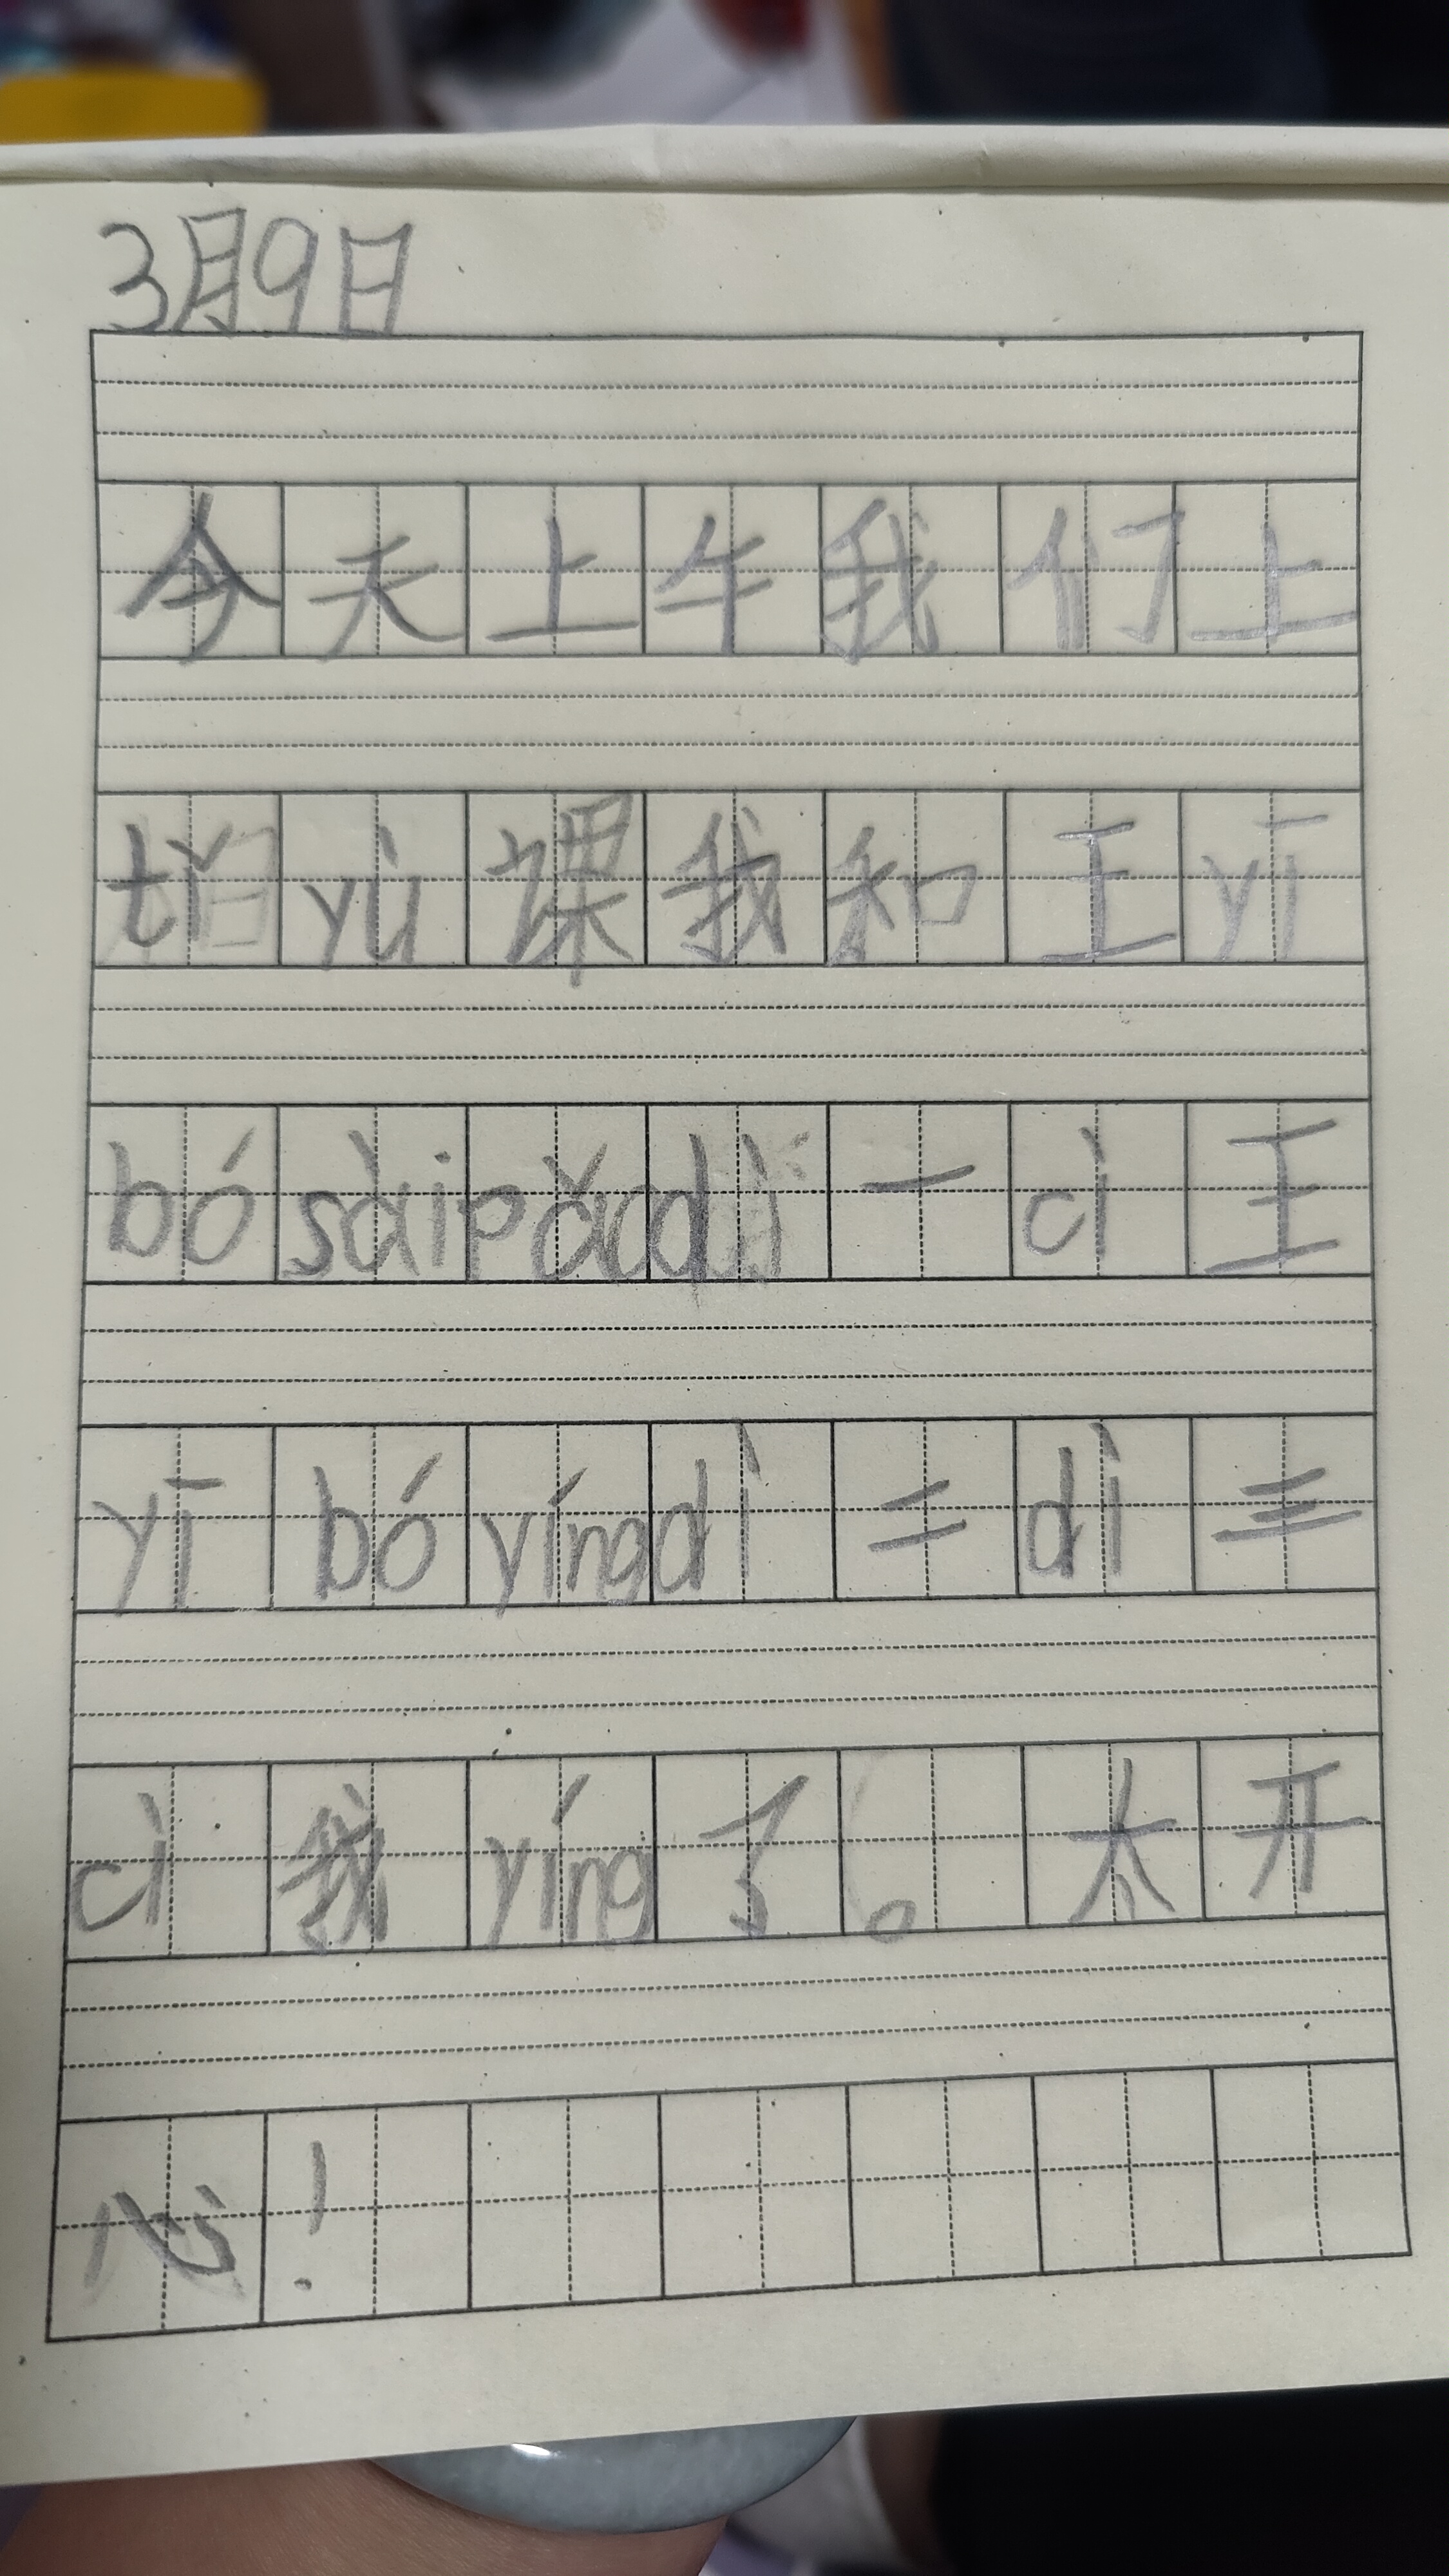 3月9日
今天上午我们上
tǐ yù 课我和王 yī
bó sàipǎo dì 一 cì 王
yī bó yíng dì 二 dì 三
cì 我 yíng 了。太开
心!